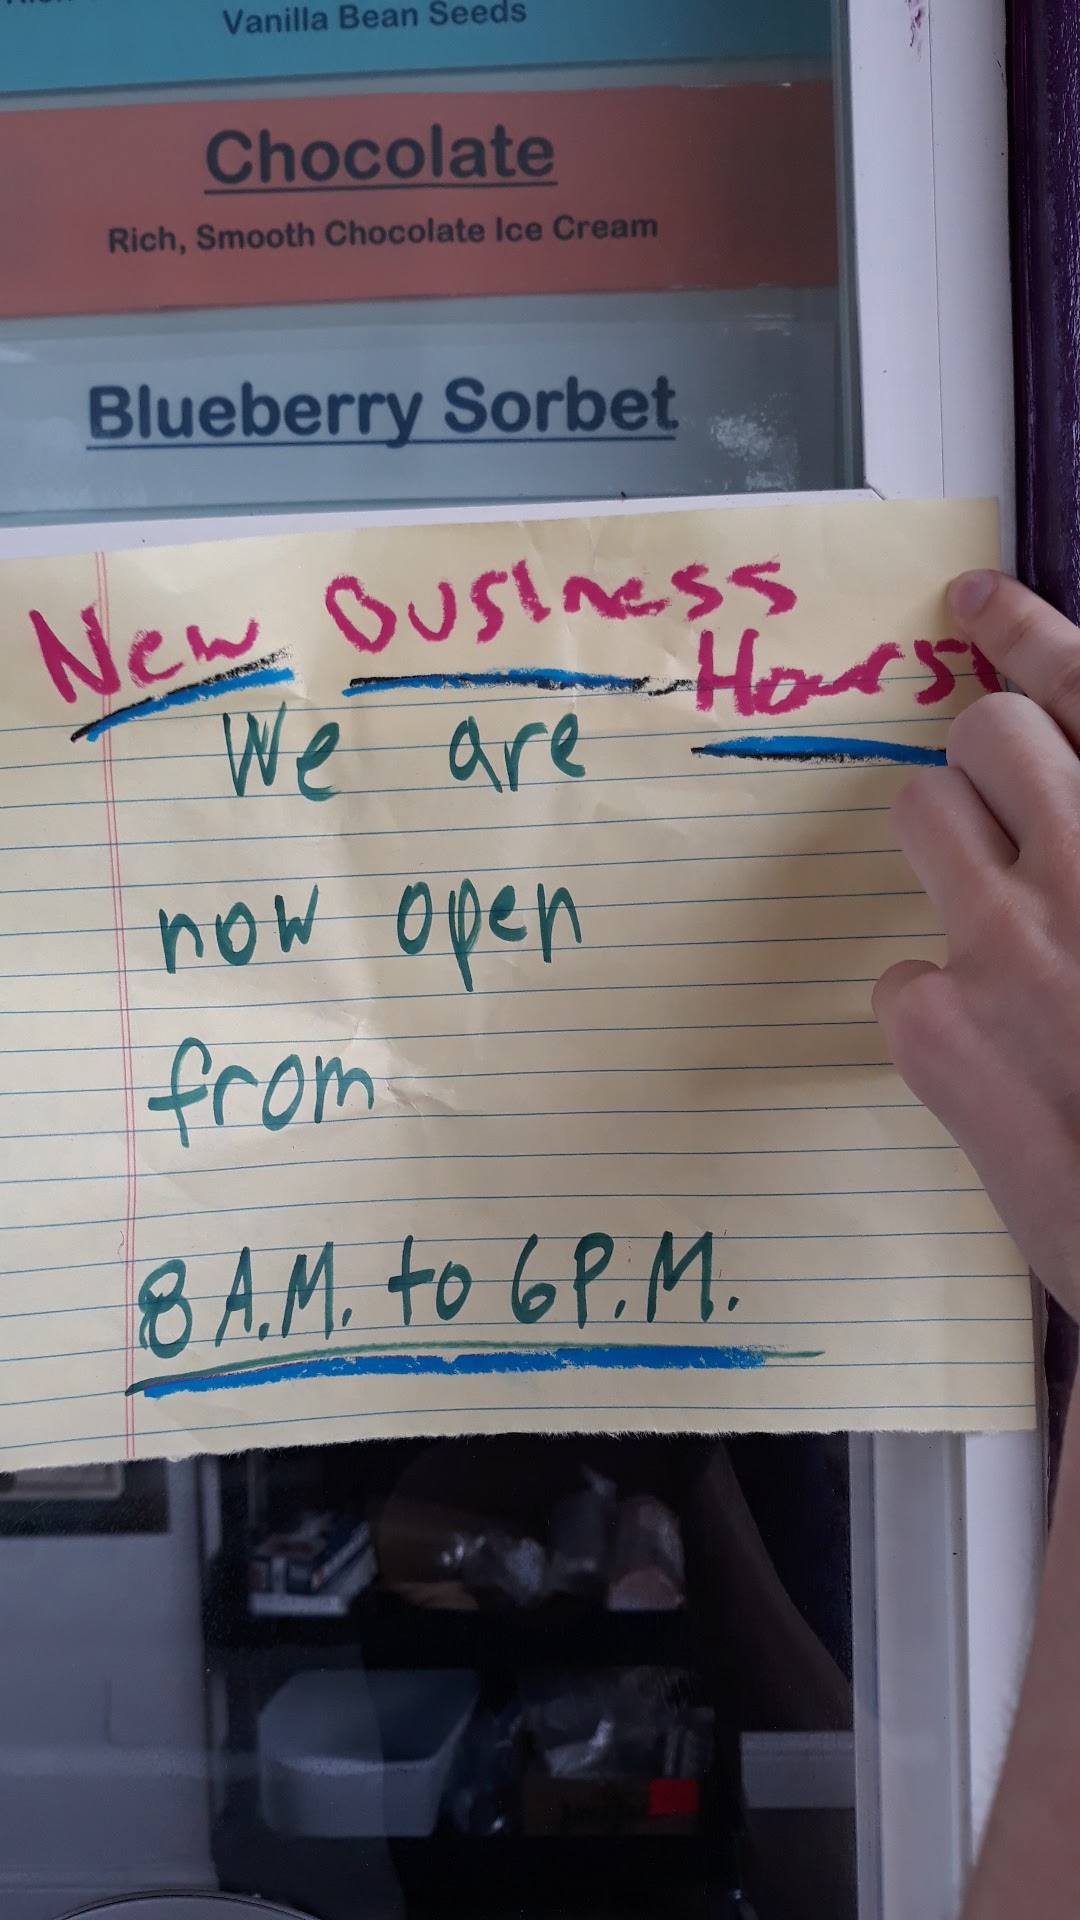 Vanilla Bean Seeds
Chocolate
Rich, Smooth Chocolate Ice Cream
Blueberry Sorbet
New Business
Hours!
We are
now open
from
8 A.M. to 6 P.M.